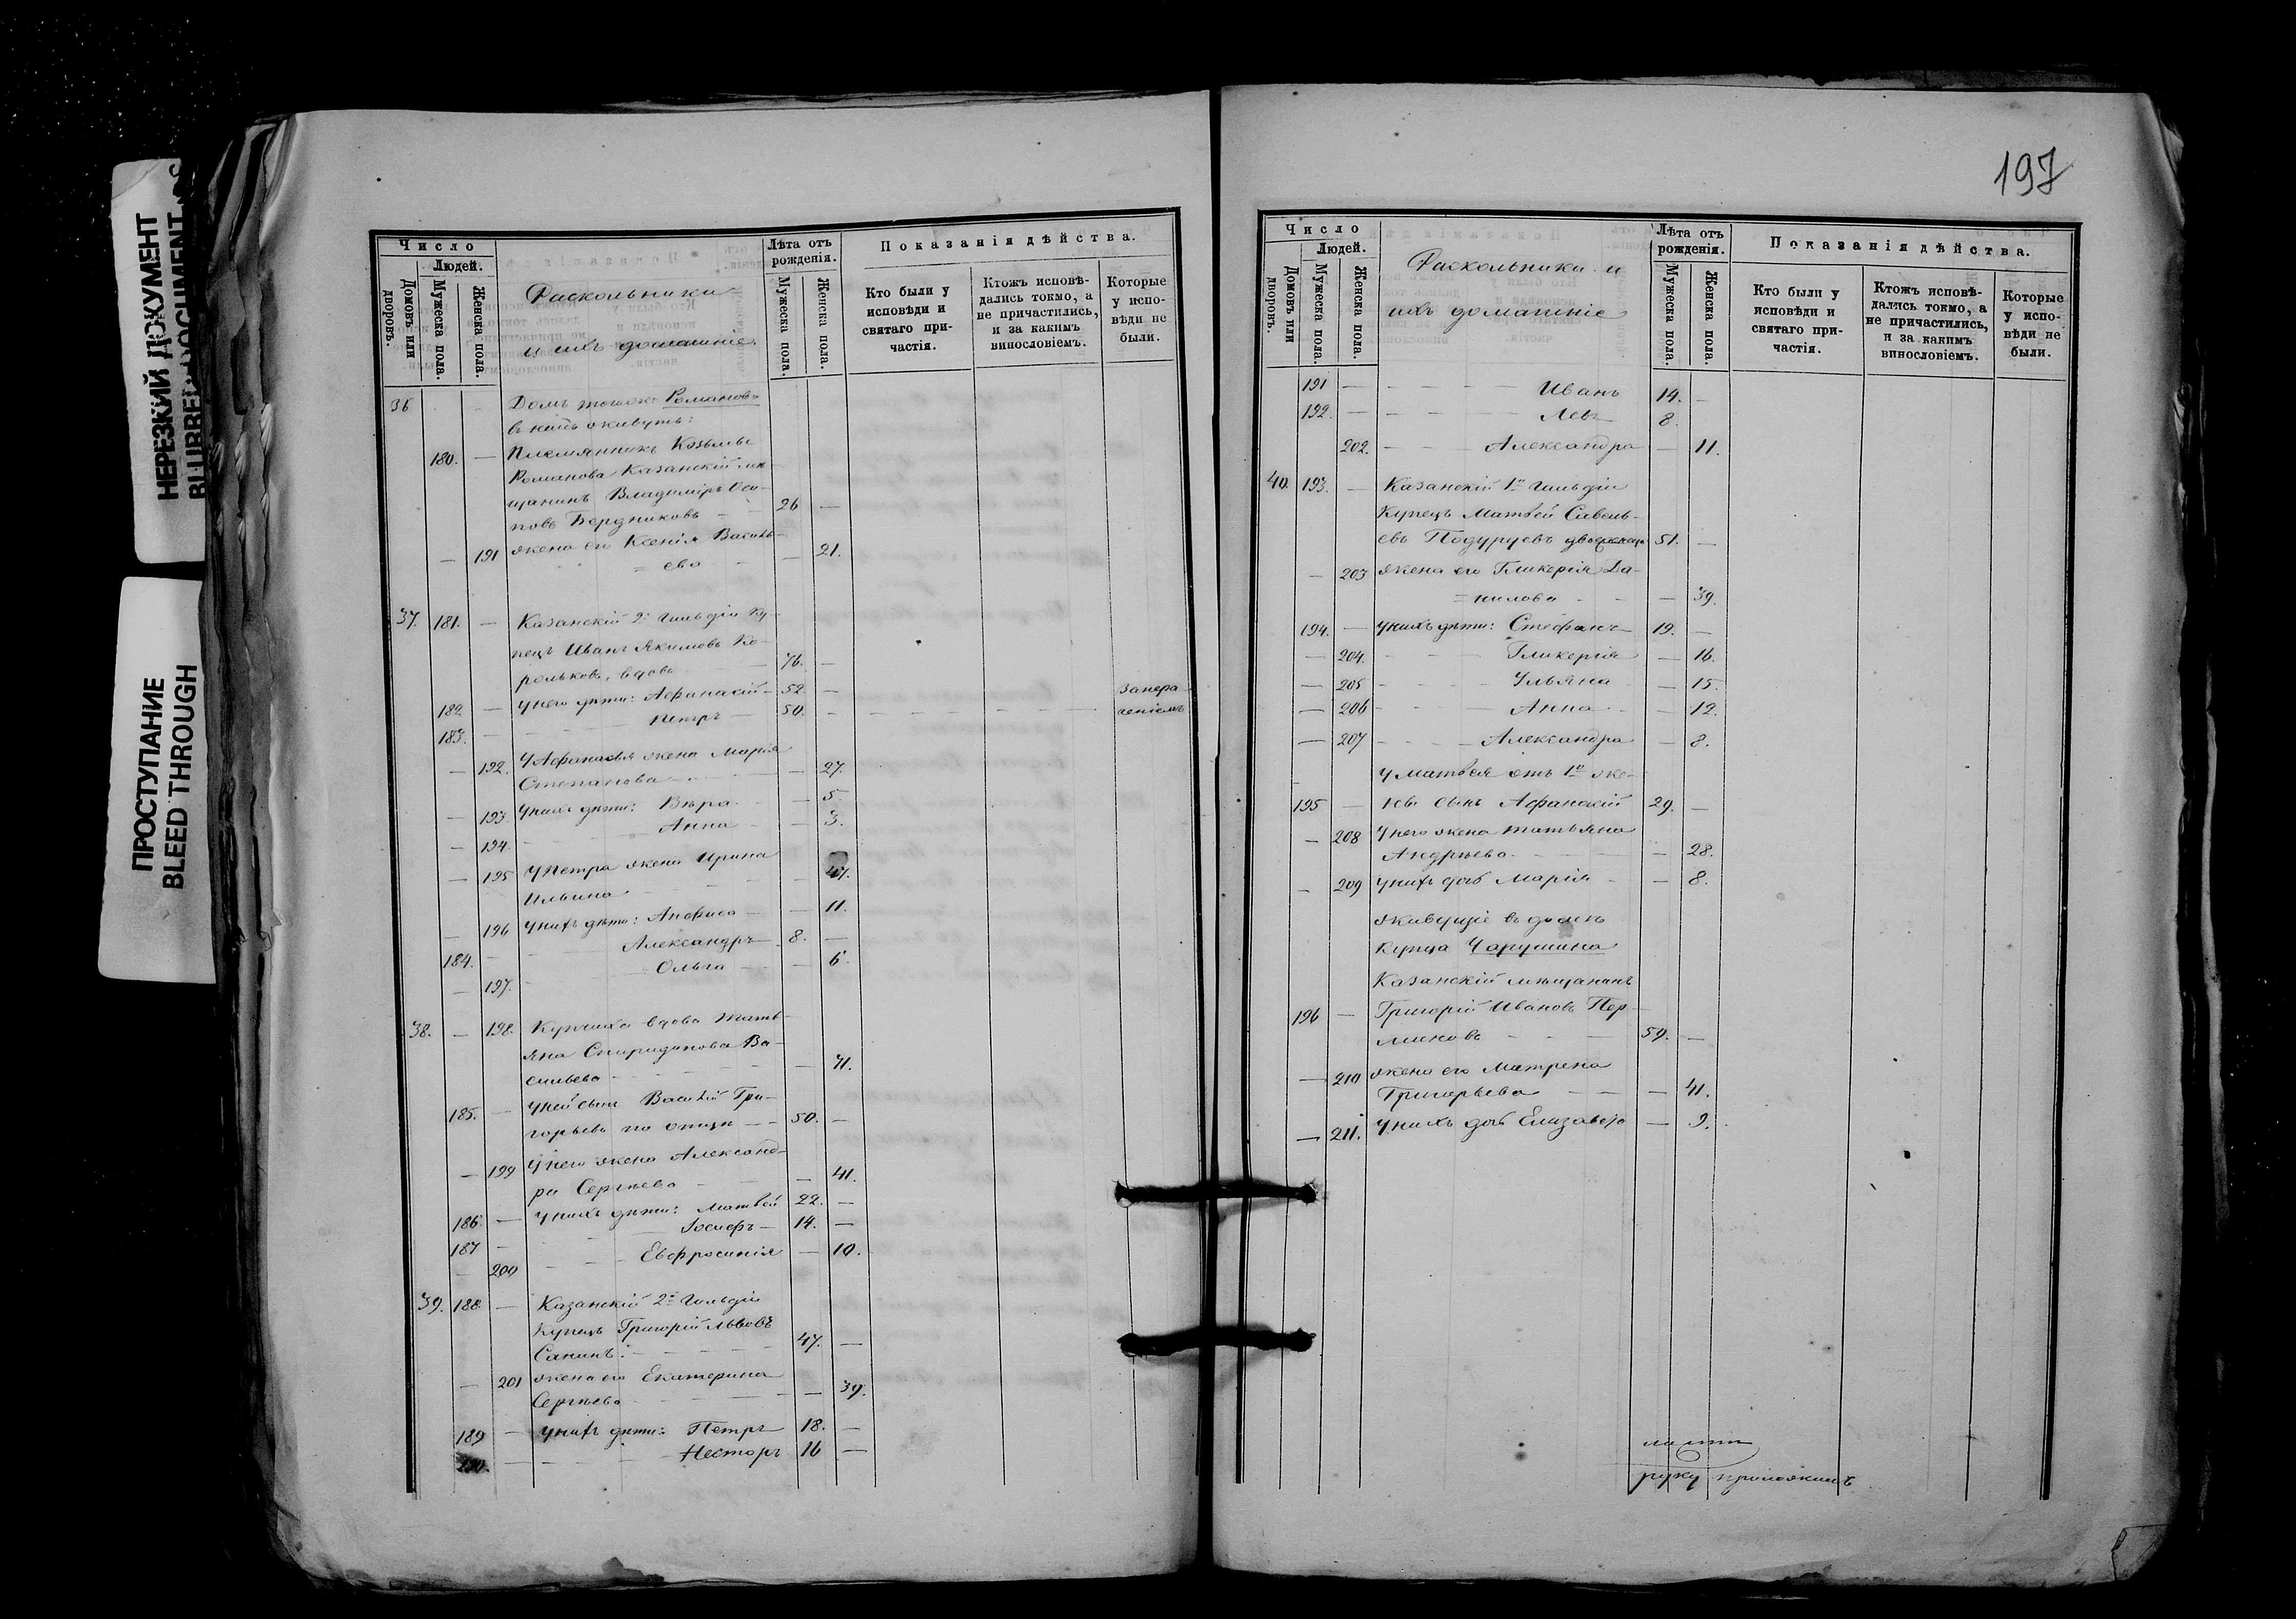 НЕРЕЗКИЙ ДОКУМЕНТ
BLURRED DOCUMENT
ПРОСТУПАНИЕ
BLEED THROUGH
Число
Людей.
Домовъ или дворовъ.
Мужеска пола.
Женска пола.
Раскольники
и ихъ домашніе
Лѣта отъ рожденія.
Мужеска пола.
Женска пола.
Показанія дѣйства.
Кто были у исповѣди и святаго причастія.
Ктожъ исповѣдались токмо, а не причастились, и за какимъ винословіемъ.
Которые у исповѣди не были.
36 Домъ тогоже Романова
въ немъ живутъ:
180. — Племянникъ Козьмы
Романова Казанскій мѣ-
щанинъ Владиміръ Оси-
повъ Бердниковъ 26 —
— 191 жена его Ксенія Василь-
ева — 21.
37. 181. — Казанскій 2й гильдіи Ку-
пецъ Иванъ Якимовъ Ко-
рольковъ, вдовъ 76. —
182 — У него дѣти: Афанасій 52 —
183. — Петръ 50. — за нера-
деніемъ
— 192. У Афанасья жена Марія
Степанова — 27.
— 193. У нихъ дѣти: Вѣра — 5.
— 194. Анна — 3.
— 195 У Петра жена Ирина
Ильина — 47.
— 196 У нихъ дѣти: Анфиса — 11.
184. — Александръ 8. —
— 197. Ольга — 6.
38. — 198. Купчиха вдова Тать-
яна Спиридонова Ва-
сильева — 71.
185. — У ней сынъ Василій Гри-
горьевъ по отцѣ 50. —
— 199 У него жена Александ-
ра Сергѣева — 41.
186. — У нихъ дѣти: Матвѣй 22. —
187 — Іосифъ 14. —
— 200 Евфросинія — 10.
39. 188 — Казанскій 2й гильдіи
Купецъ Григорій Львовъ
Санинъ: 47. —
— 201 жена его Екатерина
Сергѣева — 39.
189 — У нихъ дѣти: Петръ 18. —
190. — Несторъ 16 —
197
Число
Людей.
Домовъ или дворовъ.
Мужеска пола.
Женска пола.
Раскольники и
ихъ домашніе
Лѣта отъ рожденія.
Мужеска пола.
Женска пола.
Показанія дѣйства.
Кто были у исповѣди и святаго причастія.
Ктожъ исповѣдались токмо, а не причастились, и за какимъ винословіемъ.
Которые у исповѣди не были.
191 — Иванъ 14. —
192. — Левъ 8.
202. Александра — 11.
40. 193. — Казанскій 1й гильдіи
Купецъ Матвѣй Савель-
евъ Подуруевъ 51. —
— 203 жена его Гликерія Да-
нилова — 39.
194. — У нихъ дѣти: Стефанъ 19. —
— 204. Гликерія — 16.
— 205 Ульяна — 15.
— 206 Анна — 12.
— 207 Александра — 8.
У Матвея отъ 1й же-
195 — ны сынъ Афанасій 29. —
— 208 У него жена Татьяна
Андреева — 28.
— 209 У нихъ дочь Марія — 8.
Живущіе въ домѣ
купца Чарушина
Казанскій мѣщанинъ
196 — Григорій Ивановъ Пер-
миновъ 59. —
— 210 жена его Матрена
Григорьева — 41.
— 211. У нихъ дочь Елизавета — 9.
руку приложилъ